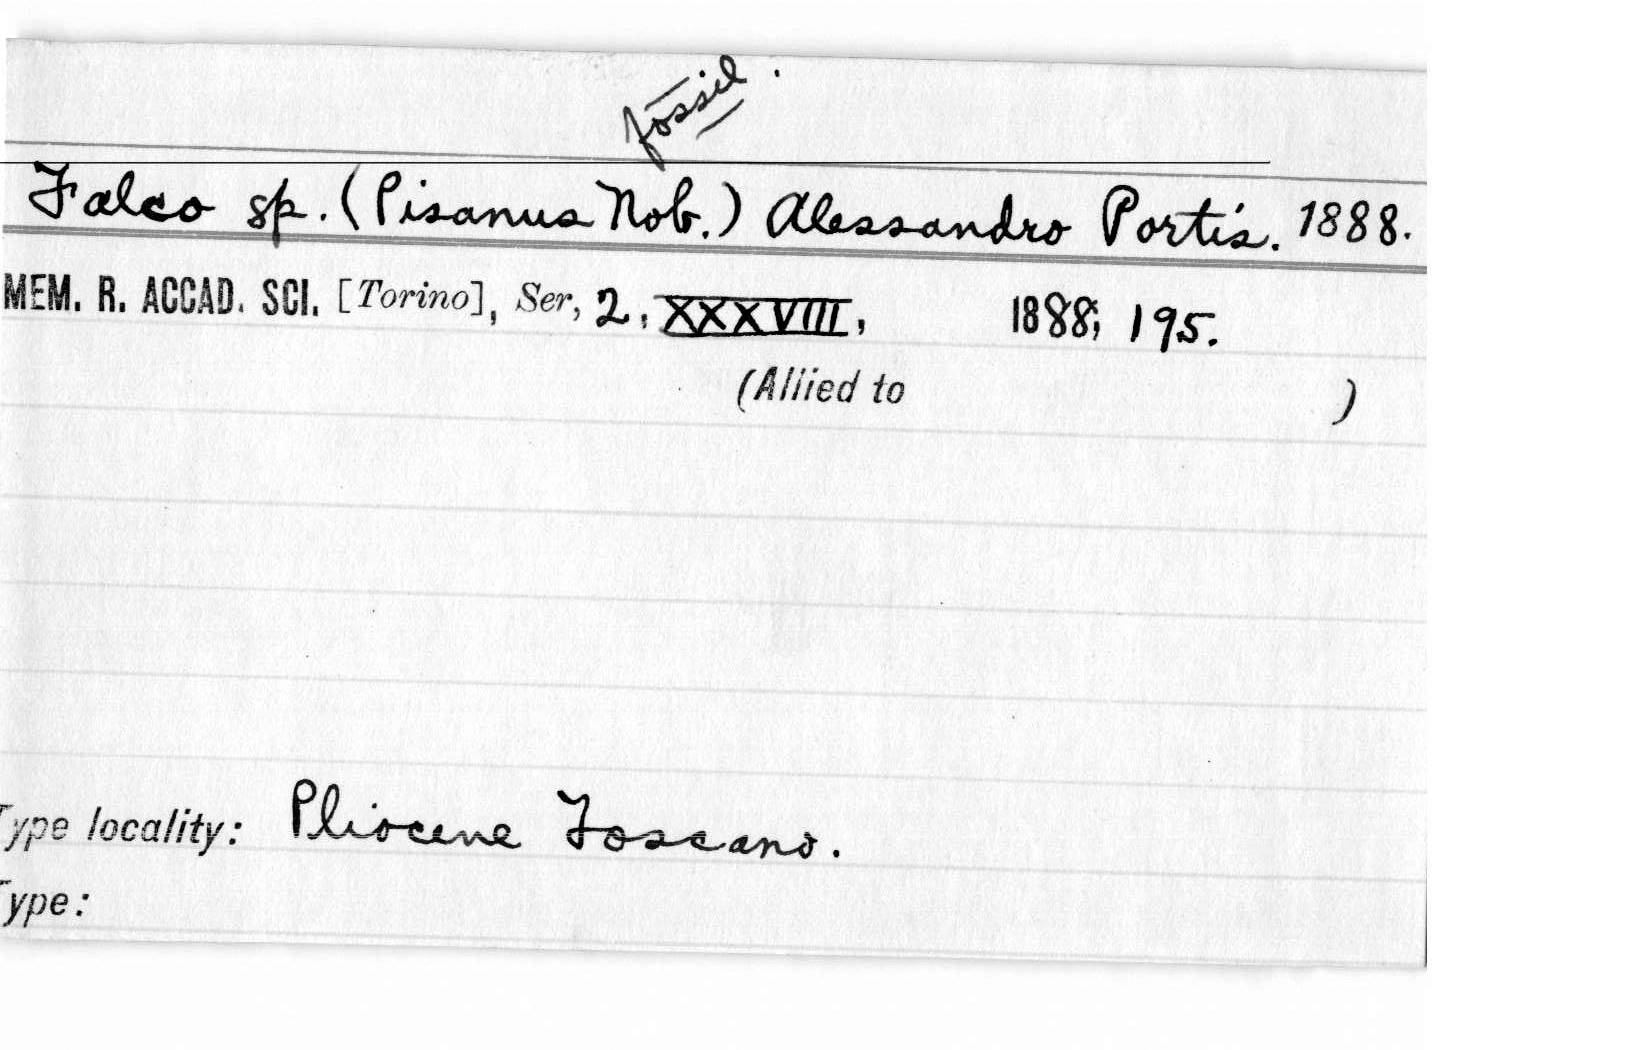 fossil.
Falco sp. (Pisanus Nob.) Alessandro Portis. 1888.
MEM. R. ACCAD. SCI. [Torino], Ser, 2, XXXVIII, 1888; 195.
(Allied to )
Type locality: Pliocene Toscano.
Type: